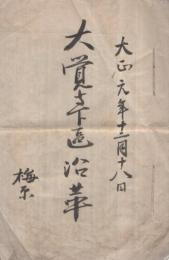 大正元年十二月十八日
大覚寺下区沿革
梅原